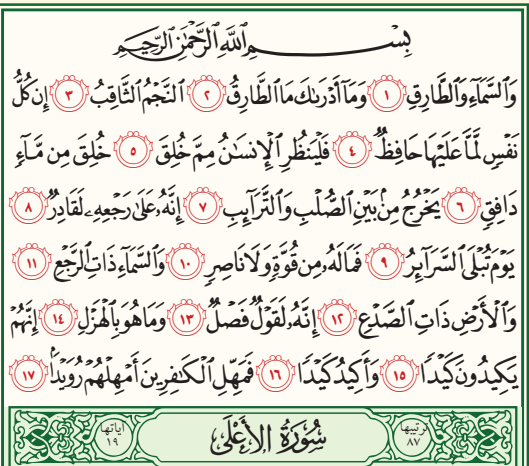 بِسْمِ ٱللَّهِ ٱلرَّحْمَٰنِ ٱلرَّحِيمِ
وَٱلسَّمَآءِ وَٱلطَّارِقِ ١ وَمَآ أَدْرَىٰكَ مَا ٱلطَّارِقُ ٢ ٱلنَّجْمُ ٱلثَّاقِبُ ٣ إِن كُلُّ
نَفْسٍ لَّمَّا عَلَيْهَا حَافِظٌ ٤ فَلْيَنظُرِ ٱلْإِنسَٰنُ مِمَّ خُلِقَ ٥ خُلِقَ مِن مَّآءٍ
دَافِقٍ ٦ يَخْرُجُ مِنۢ بَيْنِ ٱلصُّلْبِ وَٱلتَّرَآئِبِ ٧ إِنَّهُۥ عَلَىٰ رَجْعِهِۦ لَقَادِرٌ ٨
يَوْمَ تُبْلَى ٱلسَّرَآئِرُ ٩ فَمَا لَهُۥ مِن قُوَّةٍ وَلَا نَاصِرٍ ١٠ وَٱلسَّمَآءِ ذَاتِ ٱلرَّجْعِ ١١
وَٱلْأَرْضِ ذَاتِ ٱلصَّدْعِ ١٢ إِنَّهُۥ لَقَوْلٌ فَصْلٌ ١٣ وَمَا هُوَ بِٱلْهَزْلِ ١٤ إِنَّهُمْ
يَكِيدُونَ كَيْدًا ١٥ وَأَكِيدُ كَيْدًا ١٦ فَمَهِّلِ ٱلْكَٰفِرِينَ أَمْهِلْهُمْ رُوَيْدًۢا ١٧
ترتيبها ٨٧ سُورَةُ الأَعْلَىٰ آياتها ١٩